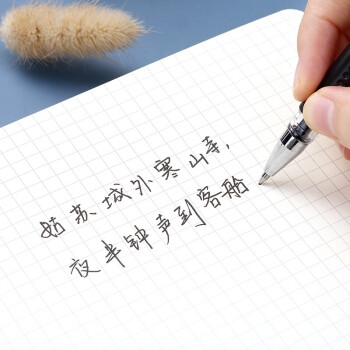 姑苏城外寒山寺,
夜半钟声到客船